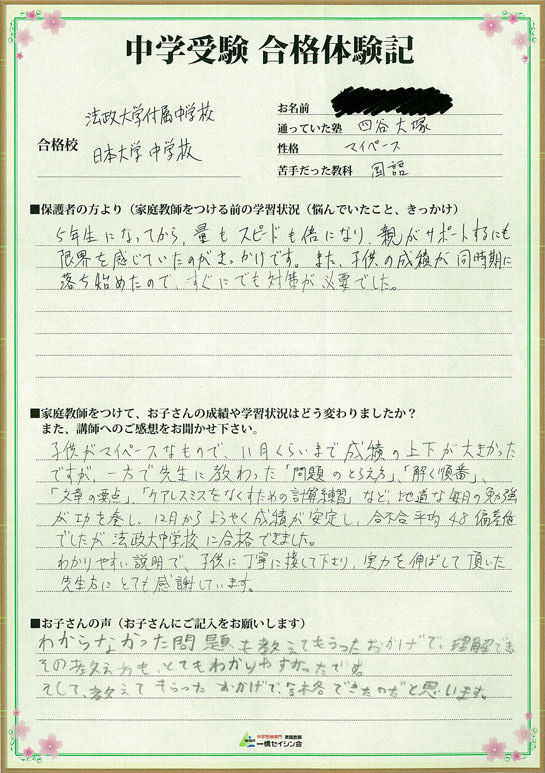 中学受験 合格体験記
合格校
法政大学付属中学校
日本大学中学校
お名前
通っていた塾 四谷大塚
性格 マイペース
苦手だった教科 国語
■保護者の方より（家庭教師をつける前の学習状況（悩んでいたこと、きっかけ）
5年生になってから、量もスピードも倍になり、親がサポートするにも
限界を感じていたのがきっかけです。また、子供の成績が同時期に
落ち始めたので、すぐにでも対策が必要でした。
■家庭教師をつけて、お子さんの成績や学習状況はどう変わりましたか？
また、講師へのご感想をお聞かせ下さい。
子供がマイペースなもので、11月くらいまで成績の上下が大きかった
ですが、一方で先生に教わった「問題のとらえ方」、「解く順番」、
「文章の要点」、「ケアレスミスをなくすための計算練習」など、地道な毎日の勉強
が功を奏し、12月からようやく成績が安定し、合不合平均48偏差値
でしたが法政大中学校に合格できました。
わかりやすい説明で、子供に丁寧に接して下さり、実力を伸ばして頂いた
先生方にとても感謝しています。
■お子さんの声（お子さんにご記入をお願いします）
わからなかった問題も教えてもらったおかげで、理解でき
その教え方も、とてもわかりやすかったです。
そして、教えてもらったおかげで合格できたのだと思います。
中学受験専門 家庭教師
一橋セイシン会